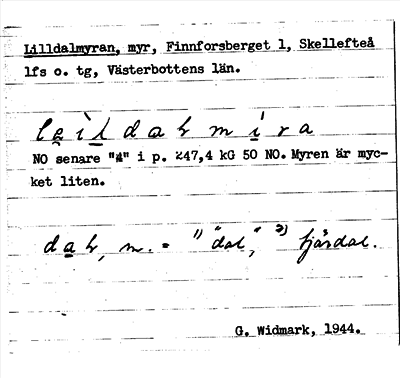 Lilldalmyran, myr, Finnforsberget 1, Skellefteå
lfs o. tg, Västerbottens län.
NO senare "4" i p. 247,4 kG 50 NO. Myren är myc-
ket liten.
m. = 1) "dal", 2) fjärdal.
G. Widmark, 1944.